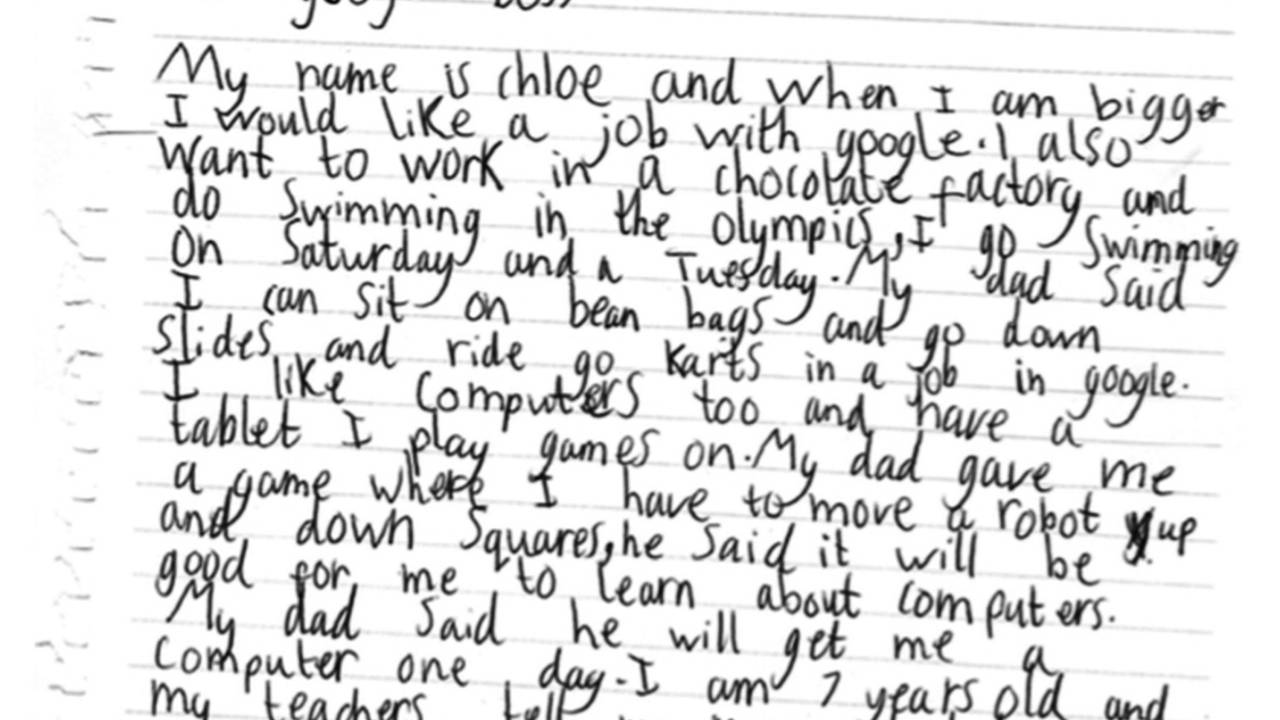 My name is chloe and when I am bigger
I would like a job with google. I also
want to work in a chocolate factory and
do swimming in the olympics, I go swimming
on Saturday and a Tuesday. My dad said
I can sit on bean bags and go down
slides and ride go karts in a job in google.
I like computers too and have a
tablet I play games on. My dad gave me
a game where I have to move a robot up
and down squares, he said it will be
good for me to learn about computers.
My dad said he will get me a
computer one day. I am 7 years old and
my teachers tell